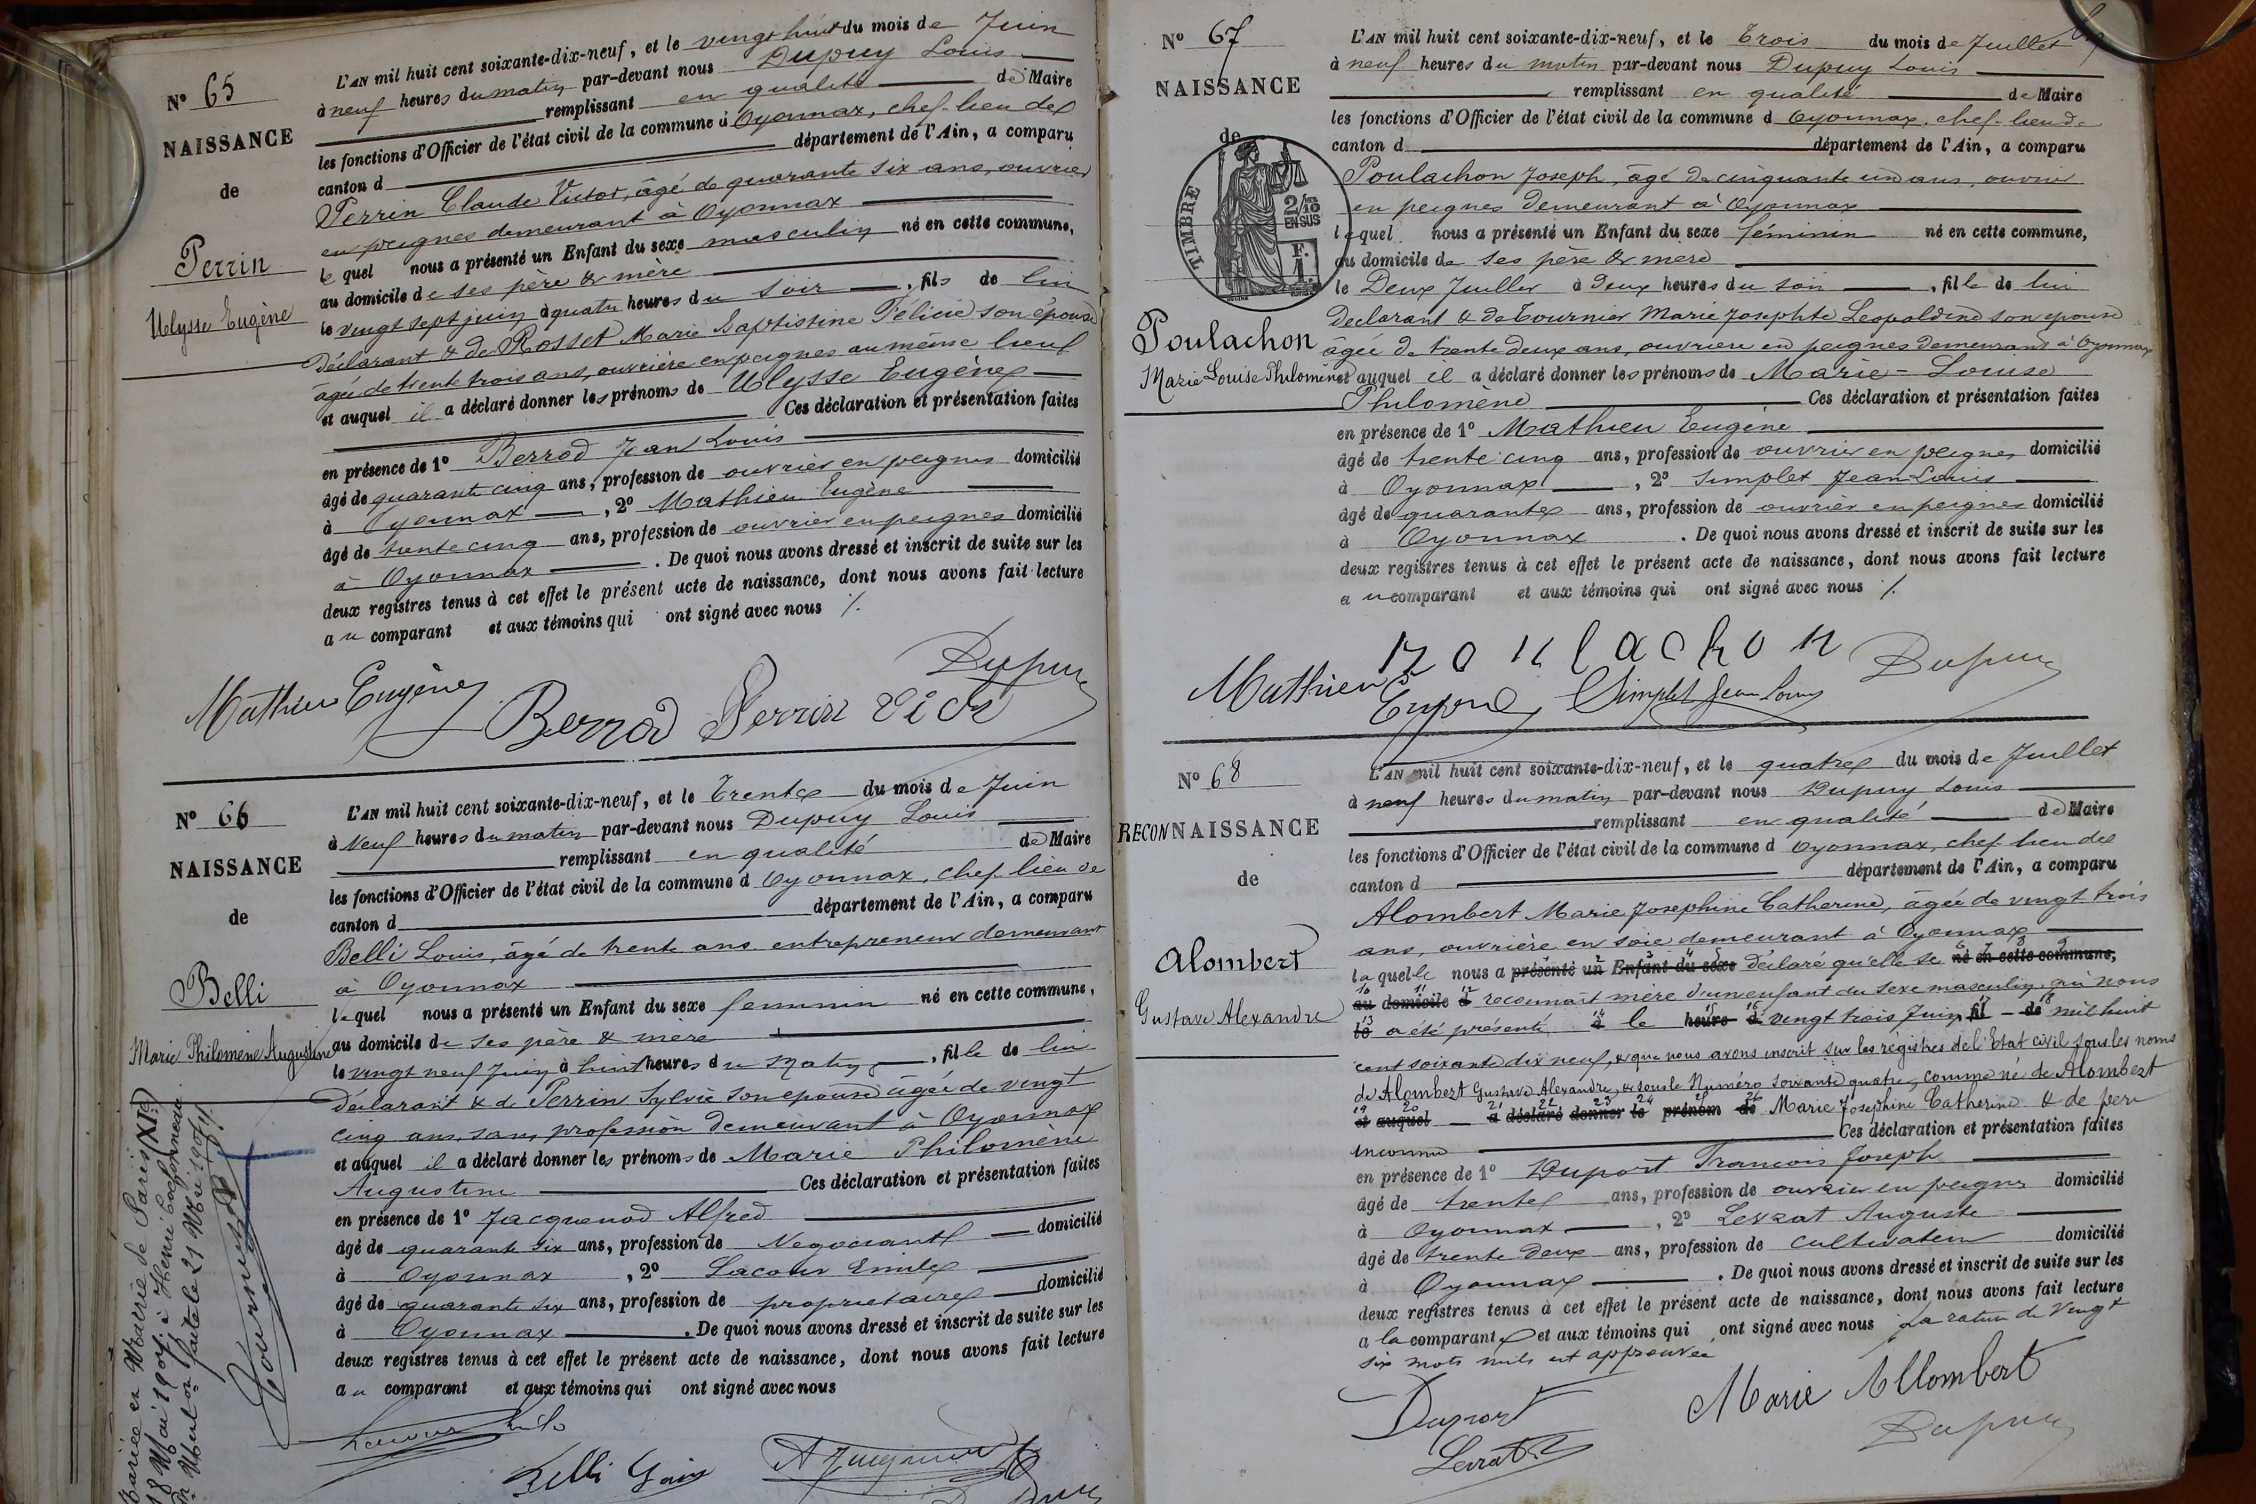 N° 65
NAISSANCE
de
Perrin
Ulysse Eugène
L'AN mil huit cent soixante-dix-neuf, et le vingt huit du mois de Juin
à neuf heures du matin par-devant nous Dupuy Louis
remplissant en qualité de Maire
les fonctions d'Officier de l'état civil de la commune d Oyonnax, chef-lieu de
canton d département de l'Ain, a comparu
Perrin Claude Victor, âgé de quarante six ans, ouvrier
en peignes demeurant à Oyonnax
lequel nous a présenté un Enfant du sexe masculin né en cette commune,
au domicile de ses père & mère
le vingt sept juin à quatre heures du soir, fils de lui
déclarant & de Rosset Marie Baptistine Félicie son épouse
âgée de trente trois ans, ouvrière en peignes au même lieu
et auquel il a déclaré donner les prénoms de Ulysse Eugène
Ces déclaration et présentation faites
en présence de 1° Berrod Jean Louis
âgé de quarante cinq ans, profession de ouvrier en peignes domicilié
à Oyonnax, 2° Mathieu Eugène
âgé de trente cinq ans, profession de ouvrier en peignes domicilié
à Oyonnax. De quoi nous avons dressé et inscrit de suite sur les
deux registres tenus à cet effet le présent acte de naissance, dont nous avons fait lecture
au comparant et aux témoins qui ont signé avec nous
Dupuy
Mathieu Eugène Berrod Perrin Victor
N° 66
NAISSANCE
de
Belli
Marie Philomène Augustine
Mariée en Mairie de Paris (XIe)
18 Mai 1907 à Henri
21 Mai 1907
Tournier
L'AN mil huit cent soixante-dix-neuf, et le Trente du mois de Juin
à Neuf heures du matin par-devant nous Dupuy Louis
remplissant en qualité de Maire
les fonctions d'Officier de l'état civil de la commune d Oyonnax, chef-lieu de
canton d département de l'Ain, a comparu
Belli Louis, âgé de trente ans entrepreneur demeurant
à Oyonnax
lequel nous a présenté un Enfant du sexe feminin né en cette commune,
au domicile de ses père & mère
le vingt neuf Juin à huit heures du Matin, fille de lui
déclarant & de Perrin Sylvie son épouse âgée de vingt
cinq ans, sans profession demeurant à Oyonnax
et auquel il a déclaré donner les prénoms de Marie Philomène
Augustine Ces déclaration et présentation faites
en présence de 1° Jacquenod Alfred
âgé de quarante six ans, profession de Negociant domicilié
à Oyonnax, 2° Lacour Emile
âgé de quarante six ans, profession de propriétaire domicilié
à Oyonnax. De quoi nous avons dressé et inscrit de suite sur les
deux registres tenus à cet effet le présent acte de naissance, dont nous avons fait lecture
au comparant et aux témoins qui ont signé avec nous
Lacour Emile
Belli Louis A Jacquenod
N° 67
NAISSANCE
de
TIMBRE
2/10
EN SUS
F.
1.
Poulachon
Marie Louise Philomène
L'AN mil huit cent soixante-dix-neuf, et le Trois du mois de Juillet
à neuf heures du matin par-devant nous Dupuy Louis
remplissant en qualité de Maire
les fonctions d'Officier de l'état civil de la commune d Oyonnax, chef-lieu de
canton d département de l'Ain, a comparu
Poulachon Joseph, âgé de cinquante un ans, ouvrier
en peignes demeurant à Oyonnax
lequel nous a présenté un Enfant du sexe féminin né en cette commune,
au domicile de ses père & mère
le Deux Juillet à Deux heures du soir, fille de lui
déclarant & de Tournier Marie Josephte Leopoldine son épouse
âgée de trente deux ans, ouvrière en peignes demeurant à Oyonnax
et auquel il a déclaré donner les prénoms de Marie-Louise
Philomène Ces déclaration et présentation faites
en présence de 1° Mathieu Eugène
âgé de trente cinq ans, profession de ouvrier en peignes domicilié
à Oyonnax, 2° Simplet Jean-Louis
âgé de quarante ans, profession de ouvrier en peignes domicilié
à Oyonnax. De quoi nous avons dressé et inscrit de suite sur les
deux registres tenus à cet effet le présent acte de naissance, dont nous avons fait lecture
au comparant et aux témoins qui ont signé avec nous
Poulachon Dupuy
Mathieu Eugène Simplet Jean Louis
N° 68
RECONNAISSANCE
de
Alombert
Gustave Alexandre
L'AN mil huit cent soixante-dix-neuf, et le quatre du mois de Juillet
à neuf heures du matin par-devant nous Dupuy Louis
remplissant en qualité de Maire
les fonctions d'Officier de l'état civil de la commune d Oyonnax, chef-lieu de
canton d département de l'Ain, a comparu
Alombert Marie Josephine Catherine, âgée de vingt trois
ans, ouvrière en soie demeurant à Oyonnax
laquelle nous a présenté un Enfant du sexe déclaré qu'elle se né en cette commune,
au domicile d reconnait mère d'un enfant du sexe masculin, qui nous
le a été présenté à le heure d vingt trois Juin fil de mil huit
cent soixante dix neuf, & que nous avons inscrit sur les registres de l'Etat civil sous les noms
de Alombert Gustave Alexandre, & sous le Numéro soixante quatre, comme né de Alombert
et auquel a déclaré donner le prénom de Marie Josephine Catherine & de père
inconnu Ces déclaration et présentation faites
en présence de 1° Duport François Joseph
âgé de trente ans, profession de ouvrier en peignes domicilié
à Oyonnax, 2° Levrat Auguste
âgé de trente deux ans, profession de cultivateur domicilié
à Oyonnax. De quoi nous avons dressé et inscrit de suite sur les
deux registres tenus à cet effet le présent acte de naissance, dont nous avons fait lecture
a la comparante et aux témoins qui ont signé avec nous La rature de vingt
six mots nuls est approuvée
Duport Marie Allombert
Levrat Dupuy